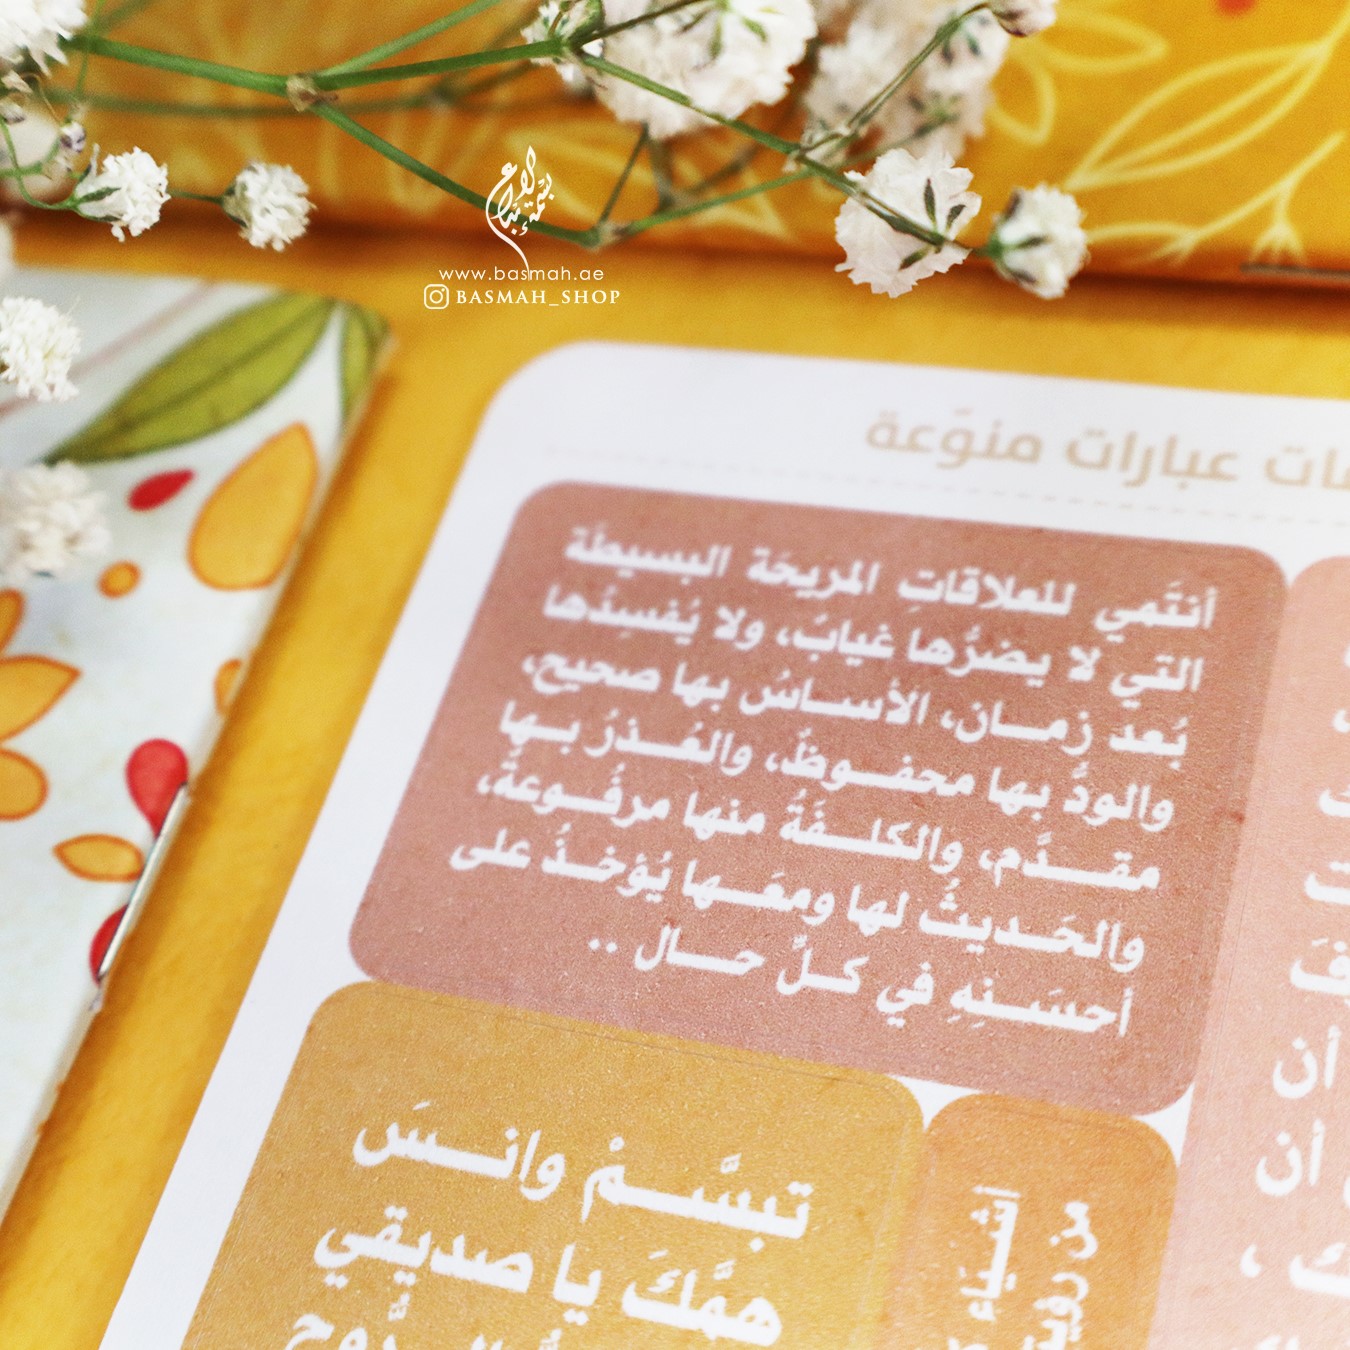 بسمة إبداع
www.basmah.ae
BASMAH_SHOP
عبارات منوَعة
أنتَمي للعلاقاتِ المريحَة البسيطَة
التي لا يضرُّها غيابٌ، ولا يُفسِدُها
بُعد زمـان، الأساسُ بها صحيح،
والودَّ بها محفـوظٌ، والعُـذرُ بـها
مقـدَّم، والكلـفَةُ منها مرفُـوعةٌ،
والحَـديثُ لها ومعَـها يُؤخـذُ على
أحسَـنِهِ في كـلِّ حـال ..
تبسَّـمْ وانـسَ
همَّكَ يا صديقي
أشياء
من
أن
أن